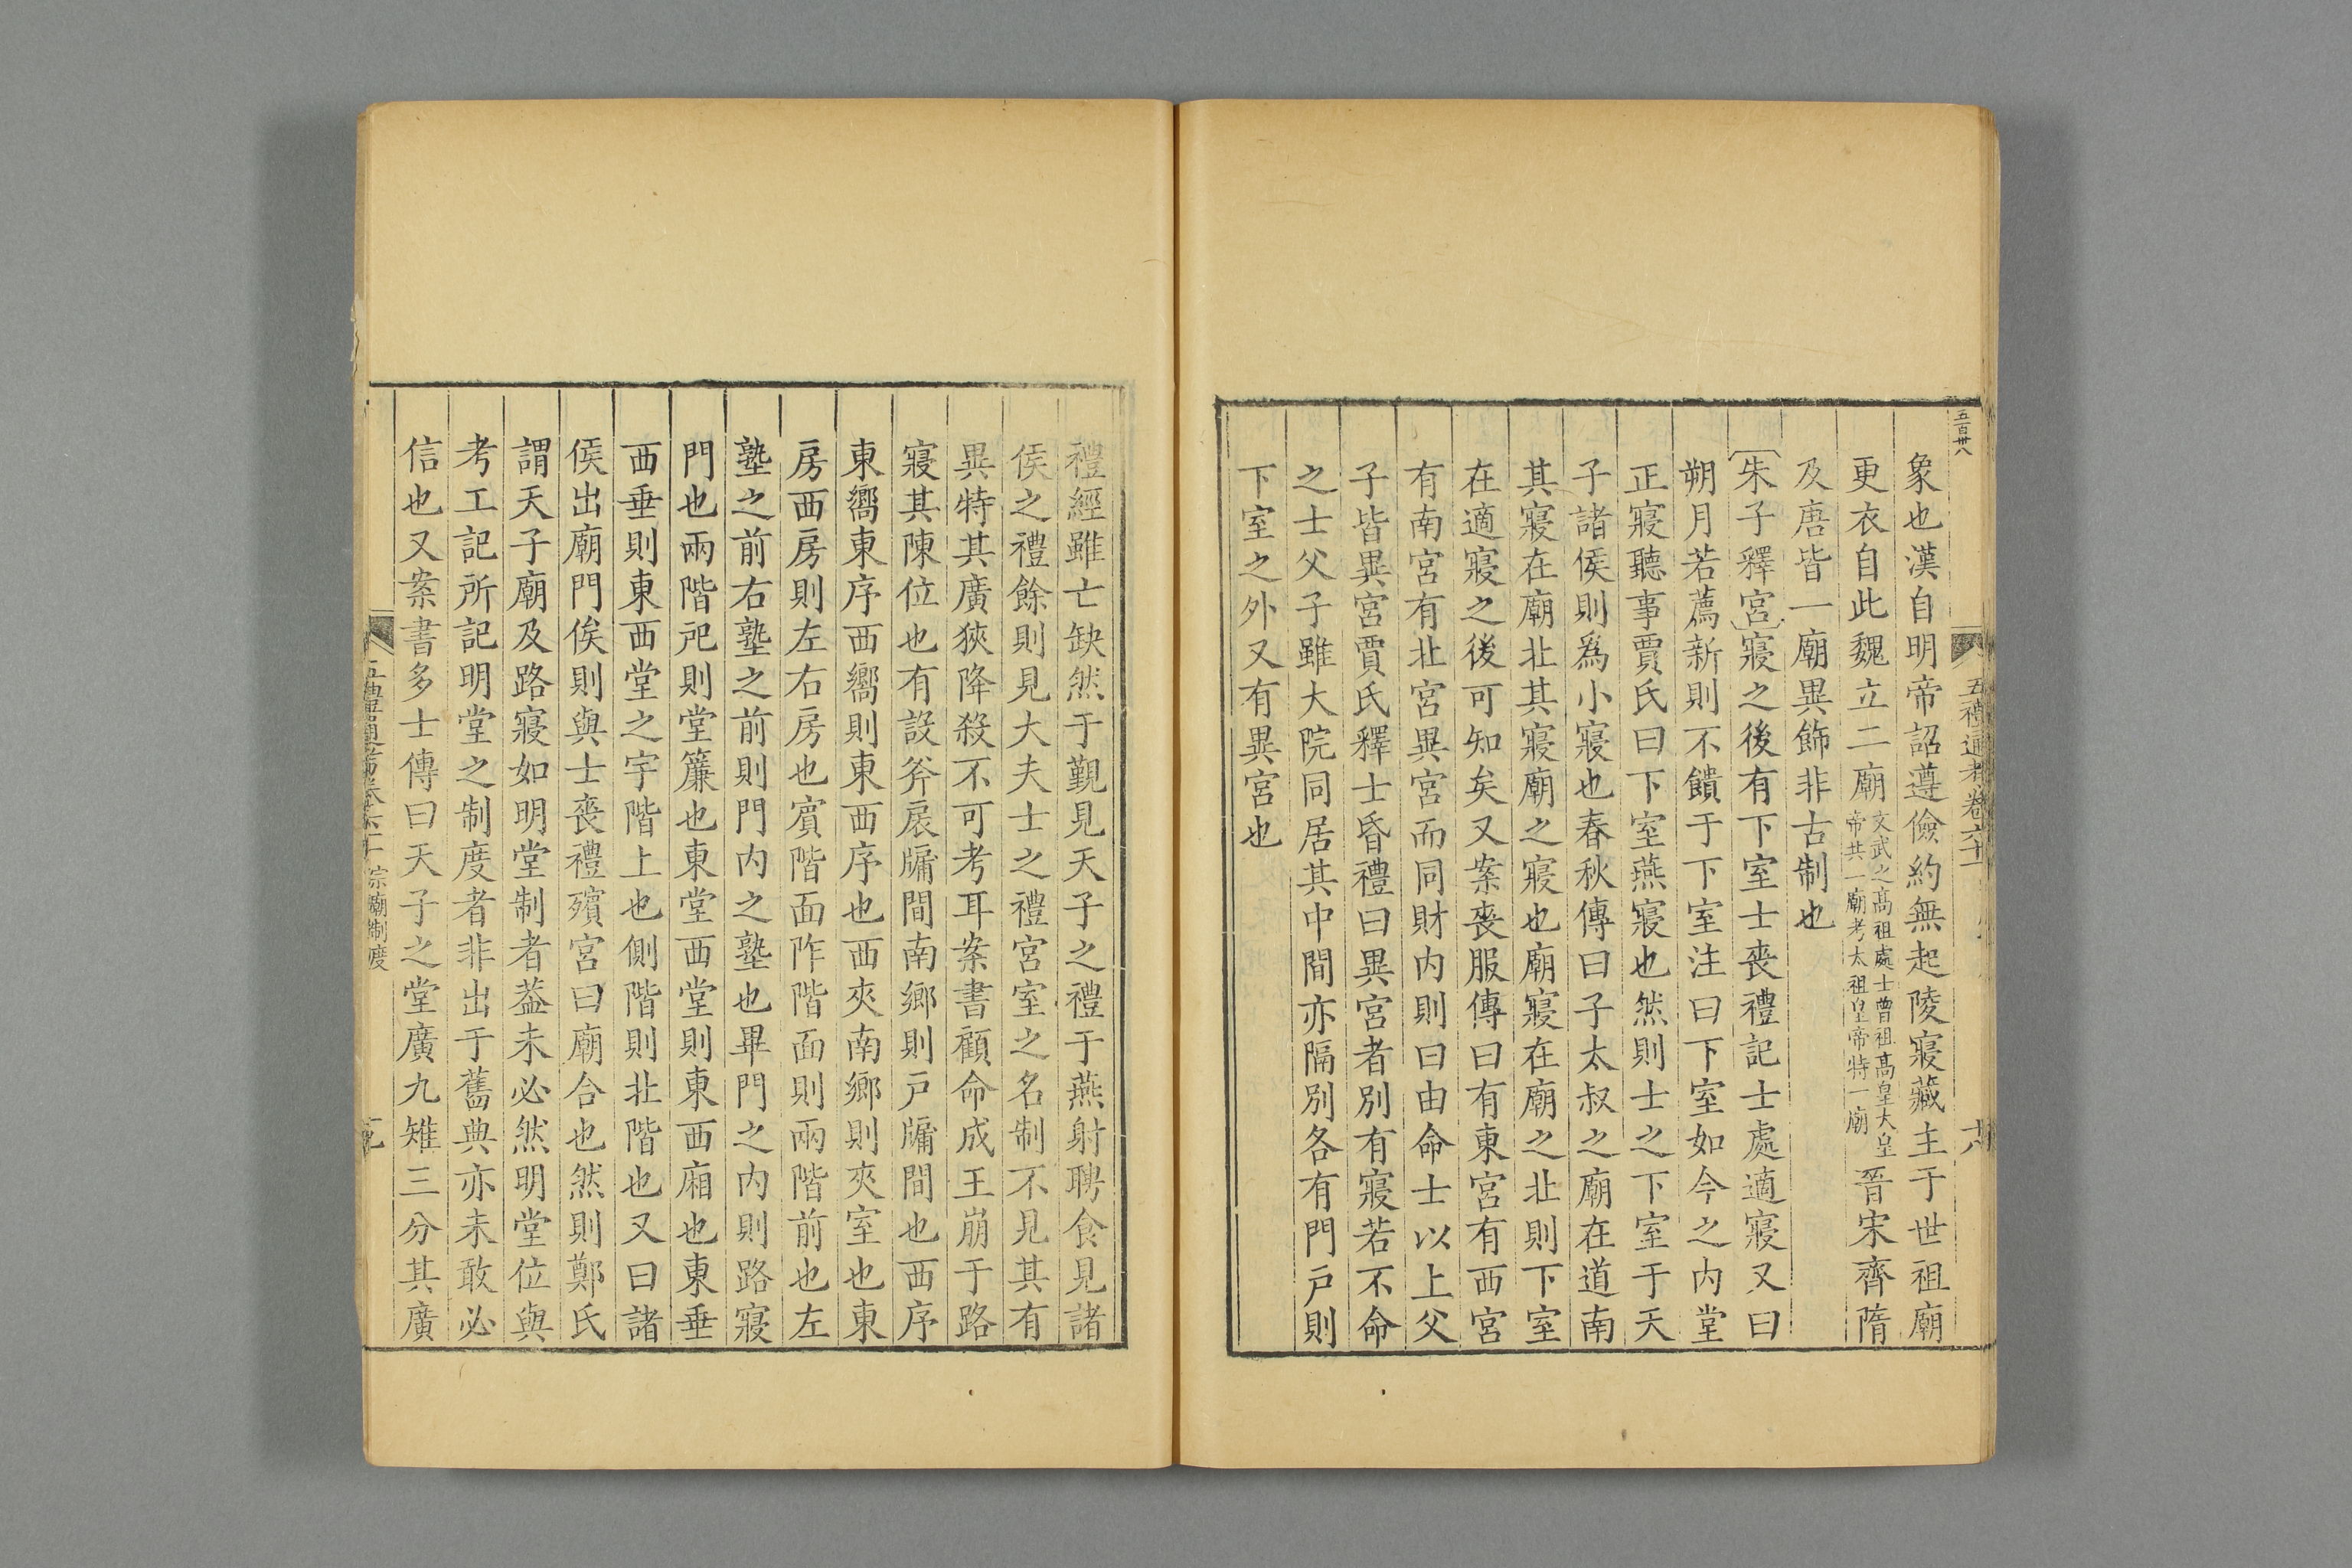 五百卅八
五禮通考卷六十
象也漢自明帝詔遵儉約無起陵寢藏主于世祖廟
更衣自此魏立二廟文武之高祖處士曾祖高皇大皇帝共一廟考太祖皇帝特一廟晉宋齊隋
及唐皆一廟異飾非古制也
朱子釋宮寢之後有下室士喪禮記士處適寢又曰
朔月若薦新則不饋于下室注曰下室如今之内堂
正寢聽事賈氏曰下室燕寢也然則士之下室于天
子諸侯則為小寢也春秋傳曰子太叔之廟在道南
其寢在廟北其寢廟之寢也廟寢在廟之北則下室
在適寢之後可知矣又案喪服傳曰有東宮有西宮
有南宮有北宮異宮而同財内則曰由命士以上父
子皆異宮賈氏釋士昏禮曰異宮者別有寢若不命
之士父子雖大院同居其中間亦隔別各有門戶則
下室之外又有異宮也
禮經雖亡缺然于覲見天子之禮于燕射聘食見諸
侯之禮餘則見大夫士之禮宮室之名制不見其有
異特其廣狹降殺不可考耳案書顧命成王崩于路
寢其陳位也有設斧扆牖間南鄉則戶牖間也西序
東嚮東序西嚮則東西序也西夾南鄉則夾室也東
房西房則左右房也賓階面阼階面則兩階前也左
塾之前右塾之前則門内之塾也畢門之内則路寢
門也兩階戺則堂簾也東堂西堂則東西廂也東垂
西垂則東西堂之宇階上也側階則北階也又曰諸
侯出廟門俟則與士喪禮殯宮曰廟合也然則鄭氏
謂天子廟及路寢如明堂制者葢未必然明堂位與
考工記所記明堂之制度者非出于舊典亦未敢必
信也又案書多士傳曰天子之堂廣九雉三分其廣
宗廟制度